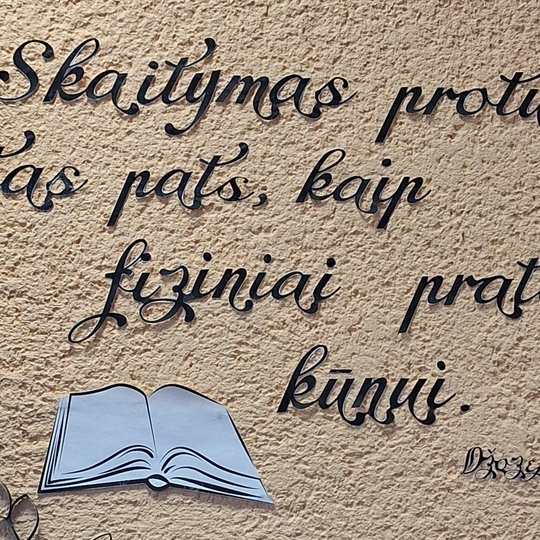 Skaitymas protu
tas pats, kaip
fiziniai prat
kūnui.